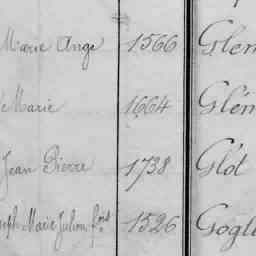 Marie Ange 1566 Glem
le Marie 1664 Glém
Jean Pierre 1738 Glot
seph Marie Julien fois 1526 Gogl